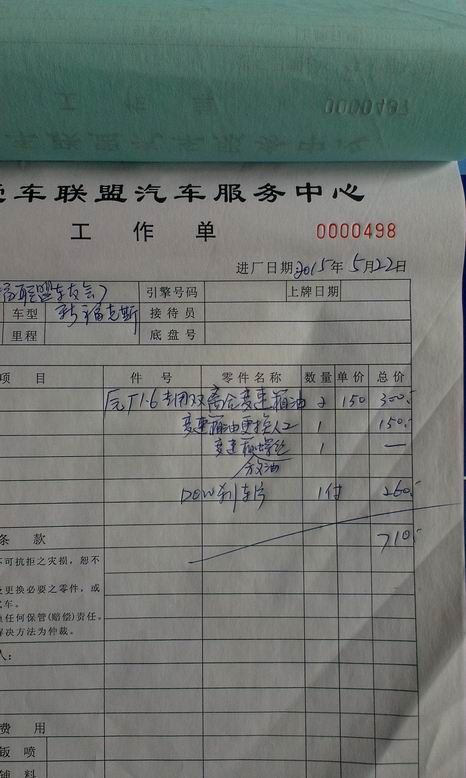 工作单 0000497
车联盟汽车服务中心
工作单 0000498
进厂日期 2015年5月22日
联盟车友会) 引擎号码 上牌日期
车型 新福克斯 接待员
里程 底盘号
项目 件号 零件名称 数量 单价 总价
1.6专用双离合变速箱油 2 150 300
变速箱油更换人工 1 150
变速箱螺丝 1 —
放油
刹车片 1付 260
条款 710
不可抗拒之灾损，恕不
更换必要之零件，或
车。
任何保管(赔偿)责任。
解决方法为仲裁。
人：
费用
钣喷
辅料